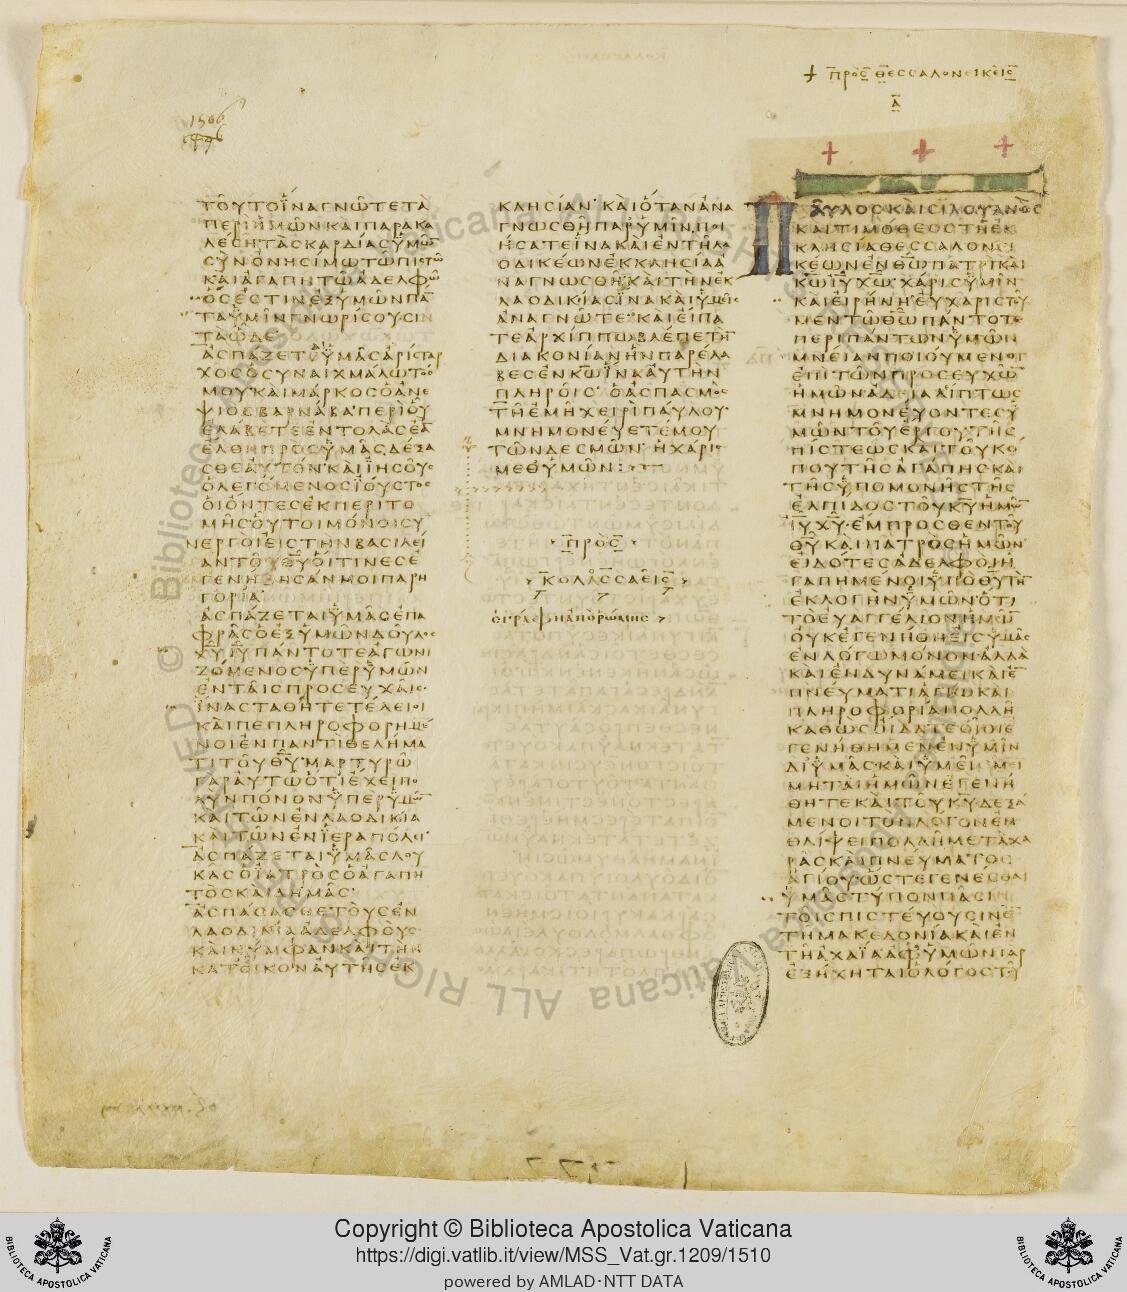 + πρὸς θεσσαλονεικεῖς
α
1506
ΤΟΥΤΟΪΝΑΓΝΩΤΕΤΑ
ΠΕΡΙΗΜΩΝΚΑΙΠΑΡΑΚΑ
ΛΕΣΗΤΑΣΚΑΡΔΙΑΣΫΜΩ̅
ΣΥΝΟΝΗΣΙΜΩΤΩΠΙΣΤΩ
ΚΑΙΑΓΑΠΗΤΩΑΔΕΛΦΩ
ΟΣΕΣΤΙΝΕΞΫΜΩΝΠΑ̅
ΤΑΫΜΙΝΓΝΩΡΙΣΟΥΣΙΝ
ΤΑΩΔΕ
ΑΣΠΑΖΕΤΑΙΫΜΑΣΑΡΙΣΤΑΡ
ΧΟΣΟΣΥΝΑΙΧΜΑΛΩΤΟΣ
ΜΟΥΚΑΙΜΑΡΚΟΣΟΑΝΕ
ΨΙΟΣΒΑΡΝΑΒΑΠΕΡΙΟΥ
ΕΛΑΒΕΤΕΕΝΤΟΛΑΣΕΑ̅
ΕΛΘΗΠΡΟΣΫΜΑΣΔΕΞΑ
ΣΘΕΑΥΤΟΝ·ΚΑΙΙΗΣΟΥΣ
ΟΛΕΓΟΜΕΝΟΣΙΟΥΣΤΟΣ
ΟΙΟΝΤΕΣΕΚΠΕΡΙΤΟ
ΜΗΣΟΥΤΟΙΜΟΝΟΙΣΥ
ΝΕΡΓΟΙΕΙΣΤΗΝΒΑΣΙΛΕΙ
ΑΝΤΟΥΘ̅Υ̅ΟΙΤΙΝΕΣΕ
ΓΕΝΗΘΗΣΑΝΜΟΙΠΑΡΗ
ΓΟΡΙΑ
ΑΣΠΑΖΕΤΑΙΫΜΑΣΕΠΑ
ΦΡΑΣΟΕΞΫΜΩΝΔΟΥΛΟΣ
Χ̅Υ̅Ι̅Υ̅ΠΑΝΤΟΤΕΑΓΩΝΙ
ΖΟΜΕΝΟΣΫΠΕΡΫΜΩΝ
ΕΝΤΑΙΣΠΡΟΣΕΥΧΑΙΣ
ΪΝΑΣΤΑΘΗΤΕΤΕΛΕΙΟΙ
ΚΑΙΠΕΠΛΗΡΟΦΟΡΗΜΕ
ΝΟΙΕΝΠΑΝΤΙΘΕΛΗΜΑ
ΤΙΤΟΥΘ̅Υ̅·ΜΑΡΤΥΡΩ
ΓΑΡΑΥΤΩΟΤΙΕΧΕΙΠΟ
ΛΥΝΠΟΝΟΝΫΠΕΡΫΜΩ̅
ΚΑΙΤΩΝΕΝΛΑΟΔΙΚΙΑ
ΚΑΙΤΩΝΕΝΪΕΡΑΠΟΛΕΙ
ΑΣΠΑΖΕΤΑΙΫΜΑΣΛΟΥ
ΚΑΣΟΙΑΤΡΟΣΟΑΓΑΠΗ
ΤΟΣΚΑΙΔΗΜΑΣ·
ΑΣΠΑΣΑΣΘΕΤΟΥΣΕΝ
ΛΑΟΔΙΚΙΑΑΔΕΛΦΟΥΣ
ΚΑΙΝΥΜΦΑΝΚΑΙΤΗΝ
ΚΑΤΟΙΚΟΝΑΥΤΗΣΕΚ
ΚΛΗΣΙΑΝ·ΚΑΙΟΤΑΝΑΝΑ
ΓΝΩΣΘΗΠΑΡΫΜΙΝΠΟΙ
ΗΣΑΤΕΙΝΑΚΑΙΕΝΤΗΛΑ
ΟΔΙΚΕΩΝΕΚΚΛΗΣΙΑΑ
ΝΑΓΝΩΣΘΗΚΑΙΤΗΝΕΚ
ΛΑΟΔΙΚΙΑΣΪΝΑΚΑΙΫΜΕΙΣ
ΑΝΑΓΝΩΤΕ·ΚΑΙΕΙΠΑ
ΤΕΑΡΧΙΠΠΩΒΛΕΠΕΤΗ̅
ΔΙΑΚΟΝΙΑΝΗΝΠΑΡΕΛΑ
ΒΕΣΕΝΚ̅Ω̅ΪΝΑΑΥΤΗΝ
ΠΛΗΡΟΙΣ·ΟΑΣΠΑΣΜΟΣ
ΤΗΕΜΗΧΕΙΡΙΠΑΥΛΟΥ·
ΜΝΗΜΟΝΕΥΕΤΕΜΟΥ
ΤΩΝΔΕΣΜΩΝ·ΗΧΑΡΙΣ
ΜΕΘΫΜΩΝ:
ΠΡΟΣ
ΚΟΛΑΣΣΑΕΙΣ
ἐγράφη ἀπὸ ῥώμης
ΠΑΥΛΟΣΚΑΙΣΙΛΟΥΑΝΟΣ
ΚΑΙΤΙΜΟΘΕΟΣΤΗΕΚ
ΚΛΗΣΙΑΘΕΣΣΑΛΟΝΕΙ
ΚΕΩΝΕΝΘ̅Ω̅ΠΑΤΡΙΚΑΙ
Κ̅Ω̅Ι̅Υ̅Χ̅Ω̅·ΧΑΡΙΣΫΜΙΝ
ΚΑΙΕΙΡΗΝΗ·ΕΥΧΑΡΙΣΤΟΥ
ΜΕΝΤΩΘ̅Ω̅ΠΑΝΤΟΤΕ
ΠΕΡΙΠΑΝΤΩΝΫΜΩΝ
ΜΝΕΙΑΝΠΟΙΟΥΜΕΝΟΙ
ΕΠΙΤΩΝΠΡΟΣΕΥΧΩ̅
ΗΜΩΝ·ΑΔΙΑΛΙΠΤΩΣ
ΜΝΗΜΟΝΕΥΟΝΤΕΣΫ
ΜΩΝΤΟΥΕΡΓΟΥΤΗΣ
ΠΙΣΤΕΩΣΚΑΙΤΟΥΚΟ
ΠΟΥΤΗΣΑΓΑΠΗΣΚΑΙ
ΤΗΣΫΠΟΜΟΝΗΣΤΗΣ
ΕΛΠΙΔΟΣΤΟΥΚ̅Υ̅ΗΜΩ̅
Ι̅Υ̅Χ̅Υ̅·ΕΜΠΡΟΣΘΕΝΤΟΥ
Θ̅Υ̅ΚΑΙΠΑΤΡΟΣΗΜΩΝ·
ΕΙΔΟΤΕΣΑΔΕΛΦΟΙΗ
ΓΑΠΗΜΕΝΟΙΫΠΟΘ̅Υ̅ΤΗ̅
ΕΚΛΟΓΗΝΫΜΩΝ·ΟΤΙ
ΤΟΕΥΑΓΓΕΛΙΟΝΗΜΩ̅
ΟΥΚΕΓΕΝΗΘΗΕΙΣΫΜΑΣ
ΕΝΛΟΓΩΜΟΝΟΝΑΛΛΑ
ΚΑΙΕΝΔΥΝΑΜΕΙΚΑΙΕ̅
ΠΝΕΥΜΑΤΙΑΓΙΩΚΑΙ
ΠΛΗΡΟΦΟΡΙΑΠΟΛΛΗ
ΚΑΘΩΣΟΙΔΑΤΕΟΙΟΙΕ
ΓΕΝΗΘΗΜΕΝΕΝΫΜΙΝ
ΔΙΫΜΑΣ·ΚΑΙΫΜΕΙΣΜΙ
ΜΗΤΑΙΗΜΩΝΕΓΕΝΗ
ΘΗΤΕΚΑΙΤΟΥΚ̅Υ̅ΔΕΞΑ
ΜΕΝΟΙΤΟΝΛΟΓΟΝΕΝ
ΘΛΙΨΕΙΠΟΛΛΗΜΕΤΑΧΑ
ΡΑΣΚΑΙΠΝΕΥΜΑΤΟΣ
ΑΓΙΟΥ·ΩΣΤΕΓΕΝΕΣΘΑΙ
ΫΜΑΣΤΥΠΟΝΠΑΣΙΝ
ΤΟΙΣΠΙΣΤΕΥΟΥΣΙΝΕ̅
ΤΗΜΑΚΕΔΟΝΙΑΚΑΙΕΝ
ΤΗΑΧΑΪΑΑΦΫΜΩΝΓΑΡ
ΕΞΗΧΗΤΑΙΟΛΟΓΟΣΤΟΥ
Copyright © Biblioteca Apostolica Vaticana
https://digi.vatlib.it/view/MSS_Vat.gr.1209/1510
powered by AMLAD·NTT DATA
BIBLIOTECA APOSTOLICA VATICANA
BIBLIOTECA APOSTOLICA VATICANA